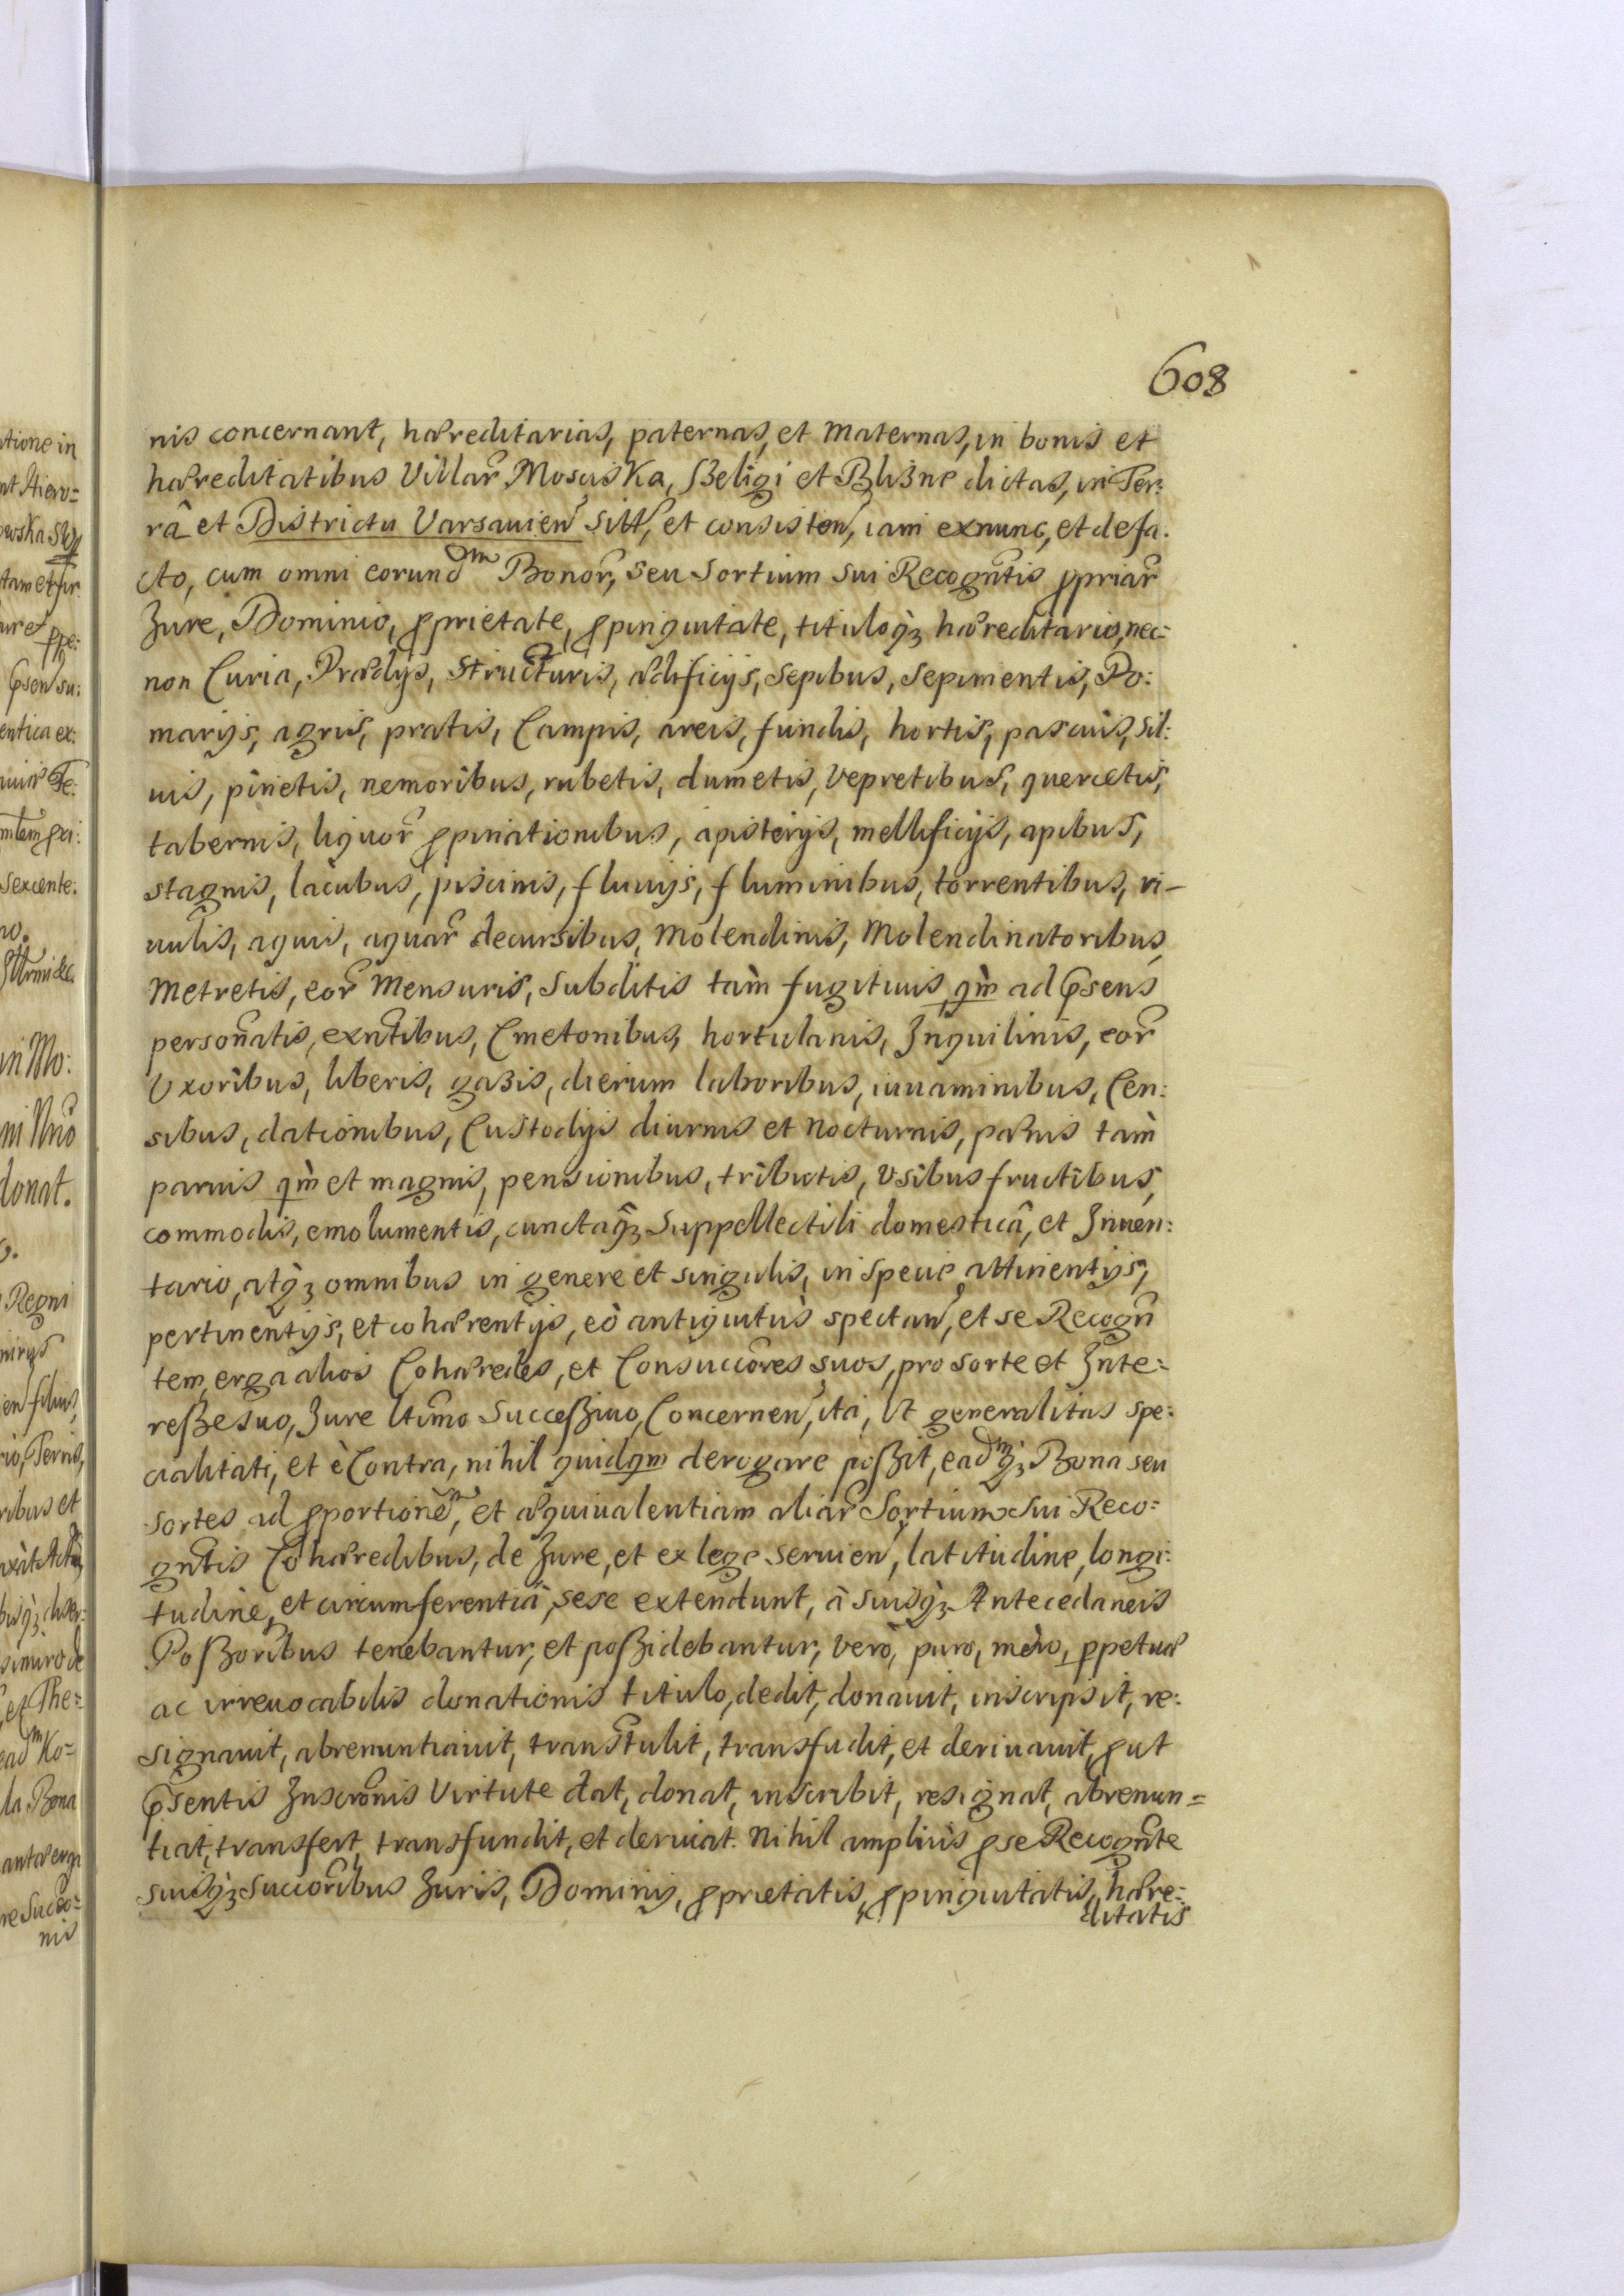 608
nis concernant, hæreditarias, paternas, et Maternas, in bonis et
hæreditatibus Villar Mosciska, Szeligi et Blizne dictas, in Ter:
râ et Districtu Varsavien sitt, et consisten, iam exnunc, et de fa:
cto, cum omni eorund^m Bonor, seu Sortium sui Recogntis ppriar
Jure, Dominio, pprietate, ppinquitate, tituloq3 hæreditario, nec=
non Curia, Prædijs, Structuris, ædificijs, Sepibus, Sepimentis, Po:
marijs, agris, pratis, Campis, areis, fundis, hortis, pascuis, sil:
uis, pinetis, nemoribus, rubetis, dumetis, Vepretibus, quercetis,
tabernis, liquor ppinationibus, apisterijs, mellificijs, apibus,
stagnis, lacubus, piscinis, fluuijs, fluminibus, torrentibus, ri-
uulis, aquis, aquar decursibus, Molendinis, Molendinatoribus,
Metretis, eor Mensuris, Subditis tàm fugitiuis qm ad psens
personatis, exntibus, Cmetonibus, hortulanis, Inquilinis, eor
Uxoribus, liberis, gazis, dierum laboribus, iuuaminibus, Cen:
sibus, dationibus, Custodijs diurnis et Nocturnis, pænis tàm
paruis qm et magnis, pensionibus, tributis, Vsibus fructibus,
commodis, emolumentis, cunctaq3 Suppellectili domesticâ, et Inuen:
tario, atq3 omnibus in genere et singulis, in specie attinentijs,
pertinentijs, et cohærentijs, eò antiquitùs spectan, et se Recogn
tem, erga alios Cohæredes, et Consuccores suos, pro sorte et Inte=
resse suo, Jure ltimo Successiuo, Concernen, ita, Vt generalitas spe:
cialitati, et è Contra, nihil quidqm derogare possit, ead^mq3 Bona seu
sortes ad pportione^m, et æquiualentiam aliar Sortium sui Reco=
gntis Cohæredibus, de Jure, et ex lege seruien, latitudine, longi:
tudine, et circumferentiâ, sese extendunt, à suisq3 Antecedaneis
Possoribus tenebantur, et possidebantur, vero, puro, mero, ppetuæ
ac irreuocabilis donationis titulo, dedit, donauit, inscripsit, re:
signauit, abrenuntiauit, transtulit, transfudit, et deriuauit, put
psentis Inscronis Virtute dat, donat, inscribit, resignat, abrenun=
tiat, transfert, transfundit, et deriuat. Nihil amplius p se Recognte
suisq3 Succoribus Juris, Dominij, pprietatis, ppinquitatis, hære:
ditatis